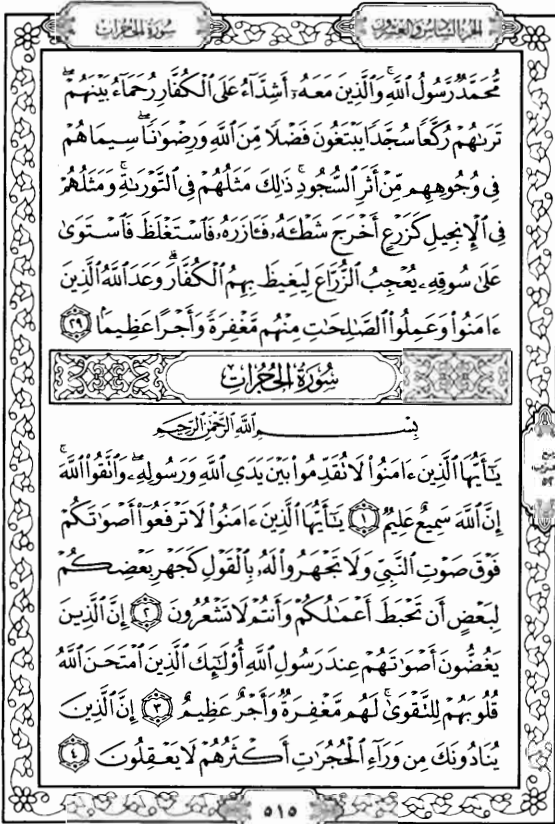 الجزء السادس والعشرون
سُورَةُ الحُجُرَاتِ
مُّحَمَّدٌ رَّسُولُ ٱللَّهِۚ وَٱلَّذِينَ مَعَهُۥٓ أَشِدَّآءُ عَلَى ٱلۡكُفَّارِ رُحَمَآءُ بَيۡنَهُمۡۖ
تَرَىٰهُمۡ رُكَّعٗا سُجَّدٗا يَبۡتَغُونَ فَضۡلٗا مِّنَ ٱللَّهِ وَرِضۡوَٰنٗاۖ سِيمَاهُمۡ
فِي وُجُوهِهِم مِّنۡ أَثَرِ ٱلسُّجُودِۚ ذَٰلِكَ مَثَلُهُمۡ فِي ٱلتَّوۡرَىٰةِۚ وَمَثَلُهُمۡ
فِي ٱلۡإِنجِيلِ كَزَرۡعٍ أَخۡرَجَ شَطۡـَٔهُۥ فَـَٔازَرَهُۥ فَٱسۡتَغۡلَظَ فَٱسۡتَوَىٰ
عَلَىٰ سُوقِهِۦ يُعۡجِبُ ٱلزُّرَّاعَ لِيَغِيظَ بِهِمُ ٱلۡكُفَّارَۗ وَعَدَ ٱللَّهُ ٱلَّذِينَ
ءَامَنُواْ وَعَمِلُواْ ٱلصَّـٰلِحَـٰتِ مِنۡهُم مَّغۡفِرَةٗ وَأَجۡرًا عَظِيمَۢا ٢٩
سُورَةُ الحُجُرَاتِ
بِسۡمِ ٱللَّهِ ٱلرَّحۡمَـٰنِ ٱلرَّحِيمِ
يَـٰٓأَيُّهَا ٱلَّذِينَ ءَامَنُواْ لَا تُقَدِّمُواْ بَيۡنَ يَدَيِ ٱللَّهِ وَرَسُولِهِۦۖ وَٱتَّقُواْ ٱللَّهَۚ
إِنَّ ٱللَّهَ سَمِيعٌ عَلِيمٞ ١ يَـٰٓأَيُّهَا ٱلَّذِينَ ءَامَنُواْ لَا تَرۡفَعُوٓاْ أَصۡوَٰتَكُمۡ
فَوۡقَ صَوۡتِ ٱلنَّبِيِّ وَلَا تَجۡهَرُواْ لَهُۥ بِٱلۡقَوۡلِ كَجَهۡرِ بَعۡضِكُمۡ
لِبَعۡضٍ أَن تَحۡبَطَ أَعۡمَـٰلُكُمۡ وَأَنتُمۡ لَا تَشۡعُرُونَ ٢ إِنَّ ٱلَّذِينَ
يَغُضُّونَ أَصۡوَٰتَهُمۡ عِندَ رَسُولِ ٱللَّهِ أُوْلَـٰٓئِكَ ٱلَّذِينَ ٱمۡتَحَنَ ٱللَّهُ
قُلُوبَهُمۡ لِلتَّقۡوَىٰۚ لَهُم مَّغۡفِرَةٞ وَأَجۡرٌ عَظِيمٌ ٣ إِنَّ ٱلَّذِينَ
يُنَادُونَكَ مِن وَرَآءِ ٱلۡحُجُرَٰتِ أَكۡثَرُهُمۡ لَا يَعۡقِلُونَ ٤
٥١٥